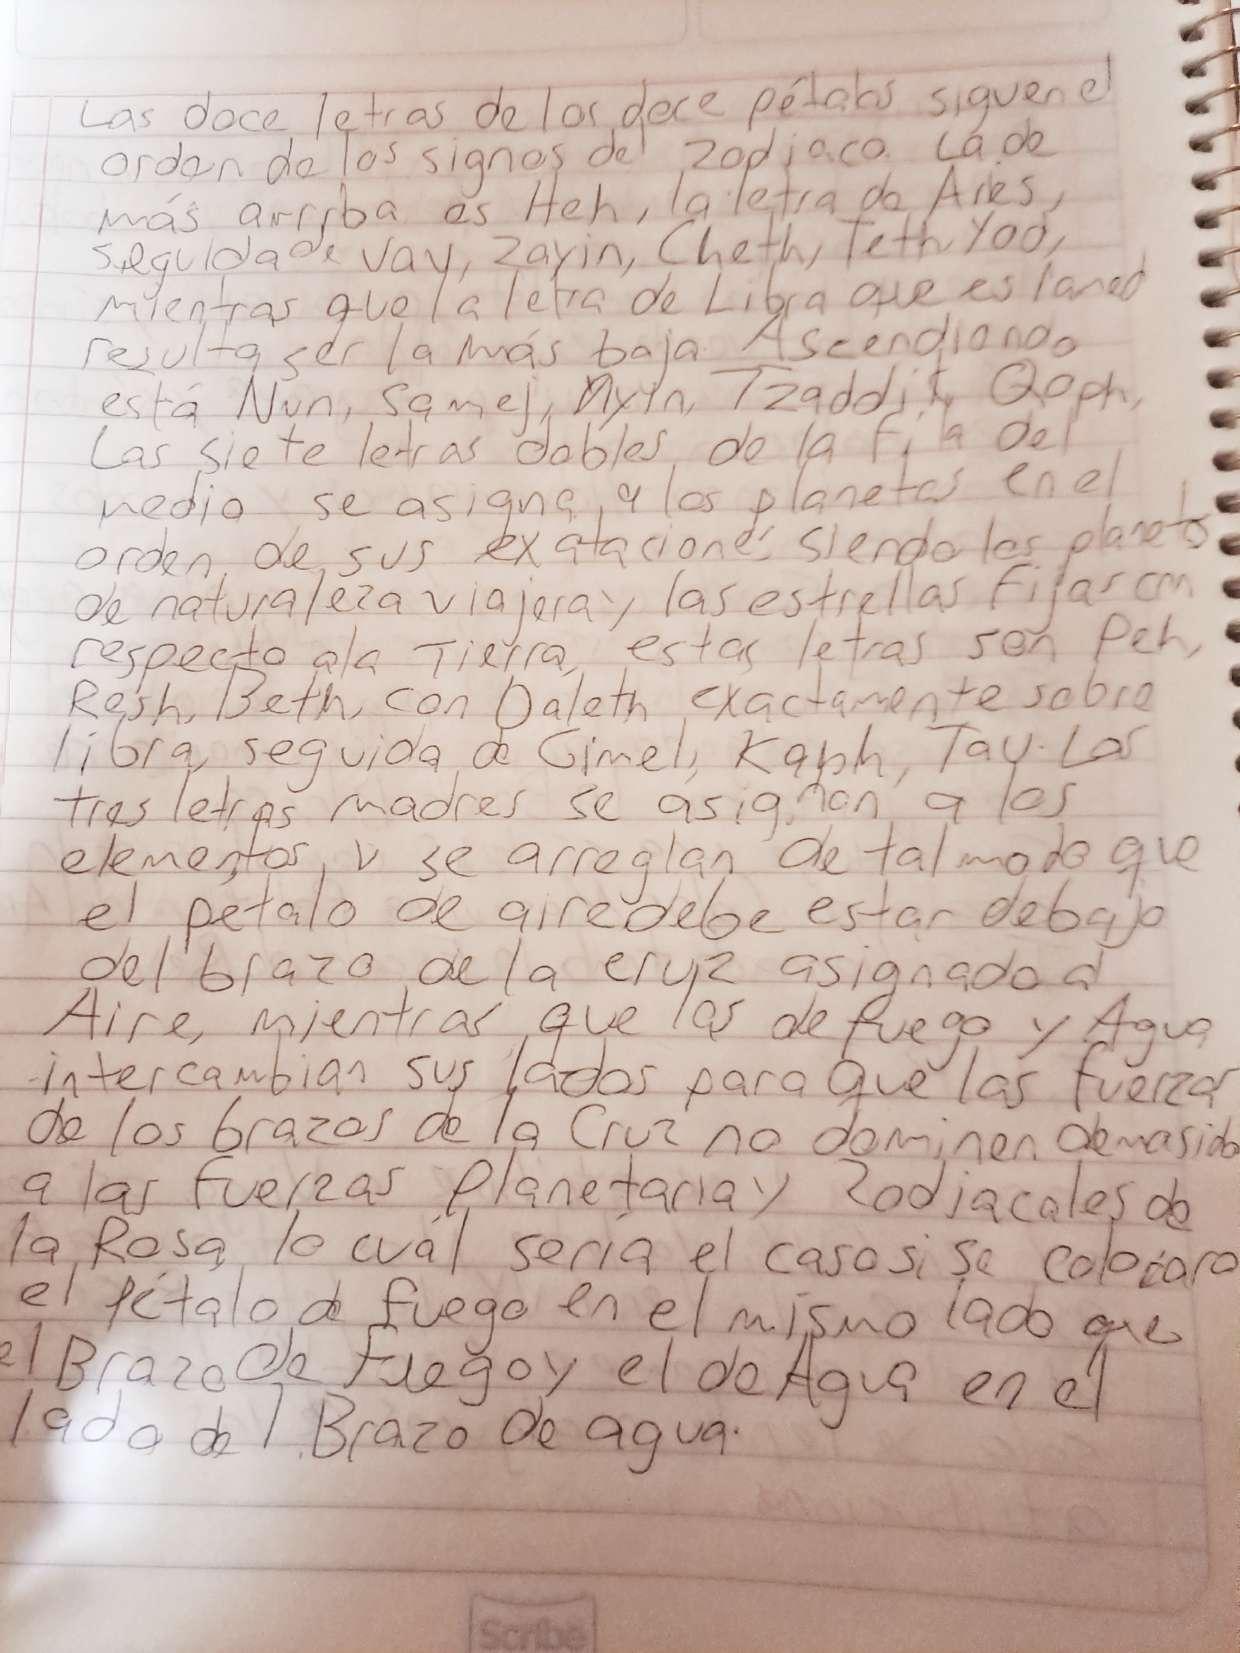 Las doce letras de los doce pétalos siguen el
orden de los signos del zodiaco. La de
más arriba es Heh, la letra de Aries,
seguida de Vav, Zayin, Cheth, Teth Yod,
mientras que la letra de Libra que es lamed
resulta ser la más baja. Ascendiendo
está Nun, Samej, Ayin, Tzaddik, Qoph,
Las siete letras dobles de la fila del
medio se asigna a los planetas en el
orden de sus exataciones siendo los planetas
de naturaleza viajera y las estrellas Fijas con
respecto a la Tierra, estas letras son Peh,
Resh, Beth, con Daleth exactamente sobre
libra, seguida de Gimel, Kaph, Tau. Las
tres letras madres se asignan a los
elementos, y se arreglan de tal modo que
el petalo de aire debe estar debajo
del brazo de la cruz asignado a
Aire, mientras que los de fuego y Agua
intercambian sus lados para que las fuerzas
de los brazos de la Cruz no dominen demasido
a las fuerzas Planetaria y Zodiacales de
la Rosa, lo cuál sería el caso si se colocara
el Pétalo de fuego en el mismo lado que
el Brazo de Fuego y el de Agua en el
lado del Brazo de agua.
Scribe